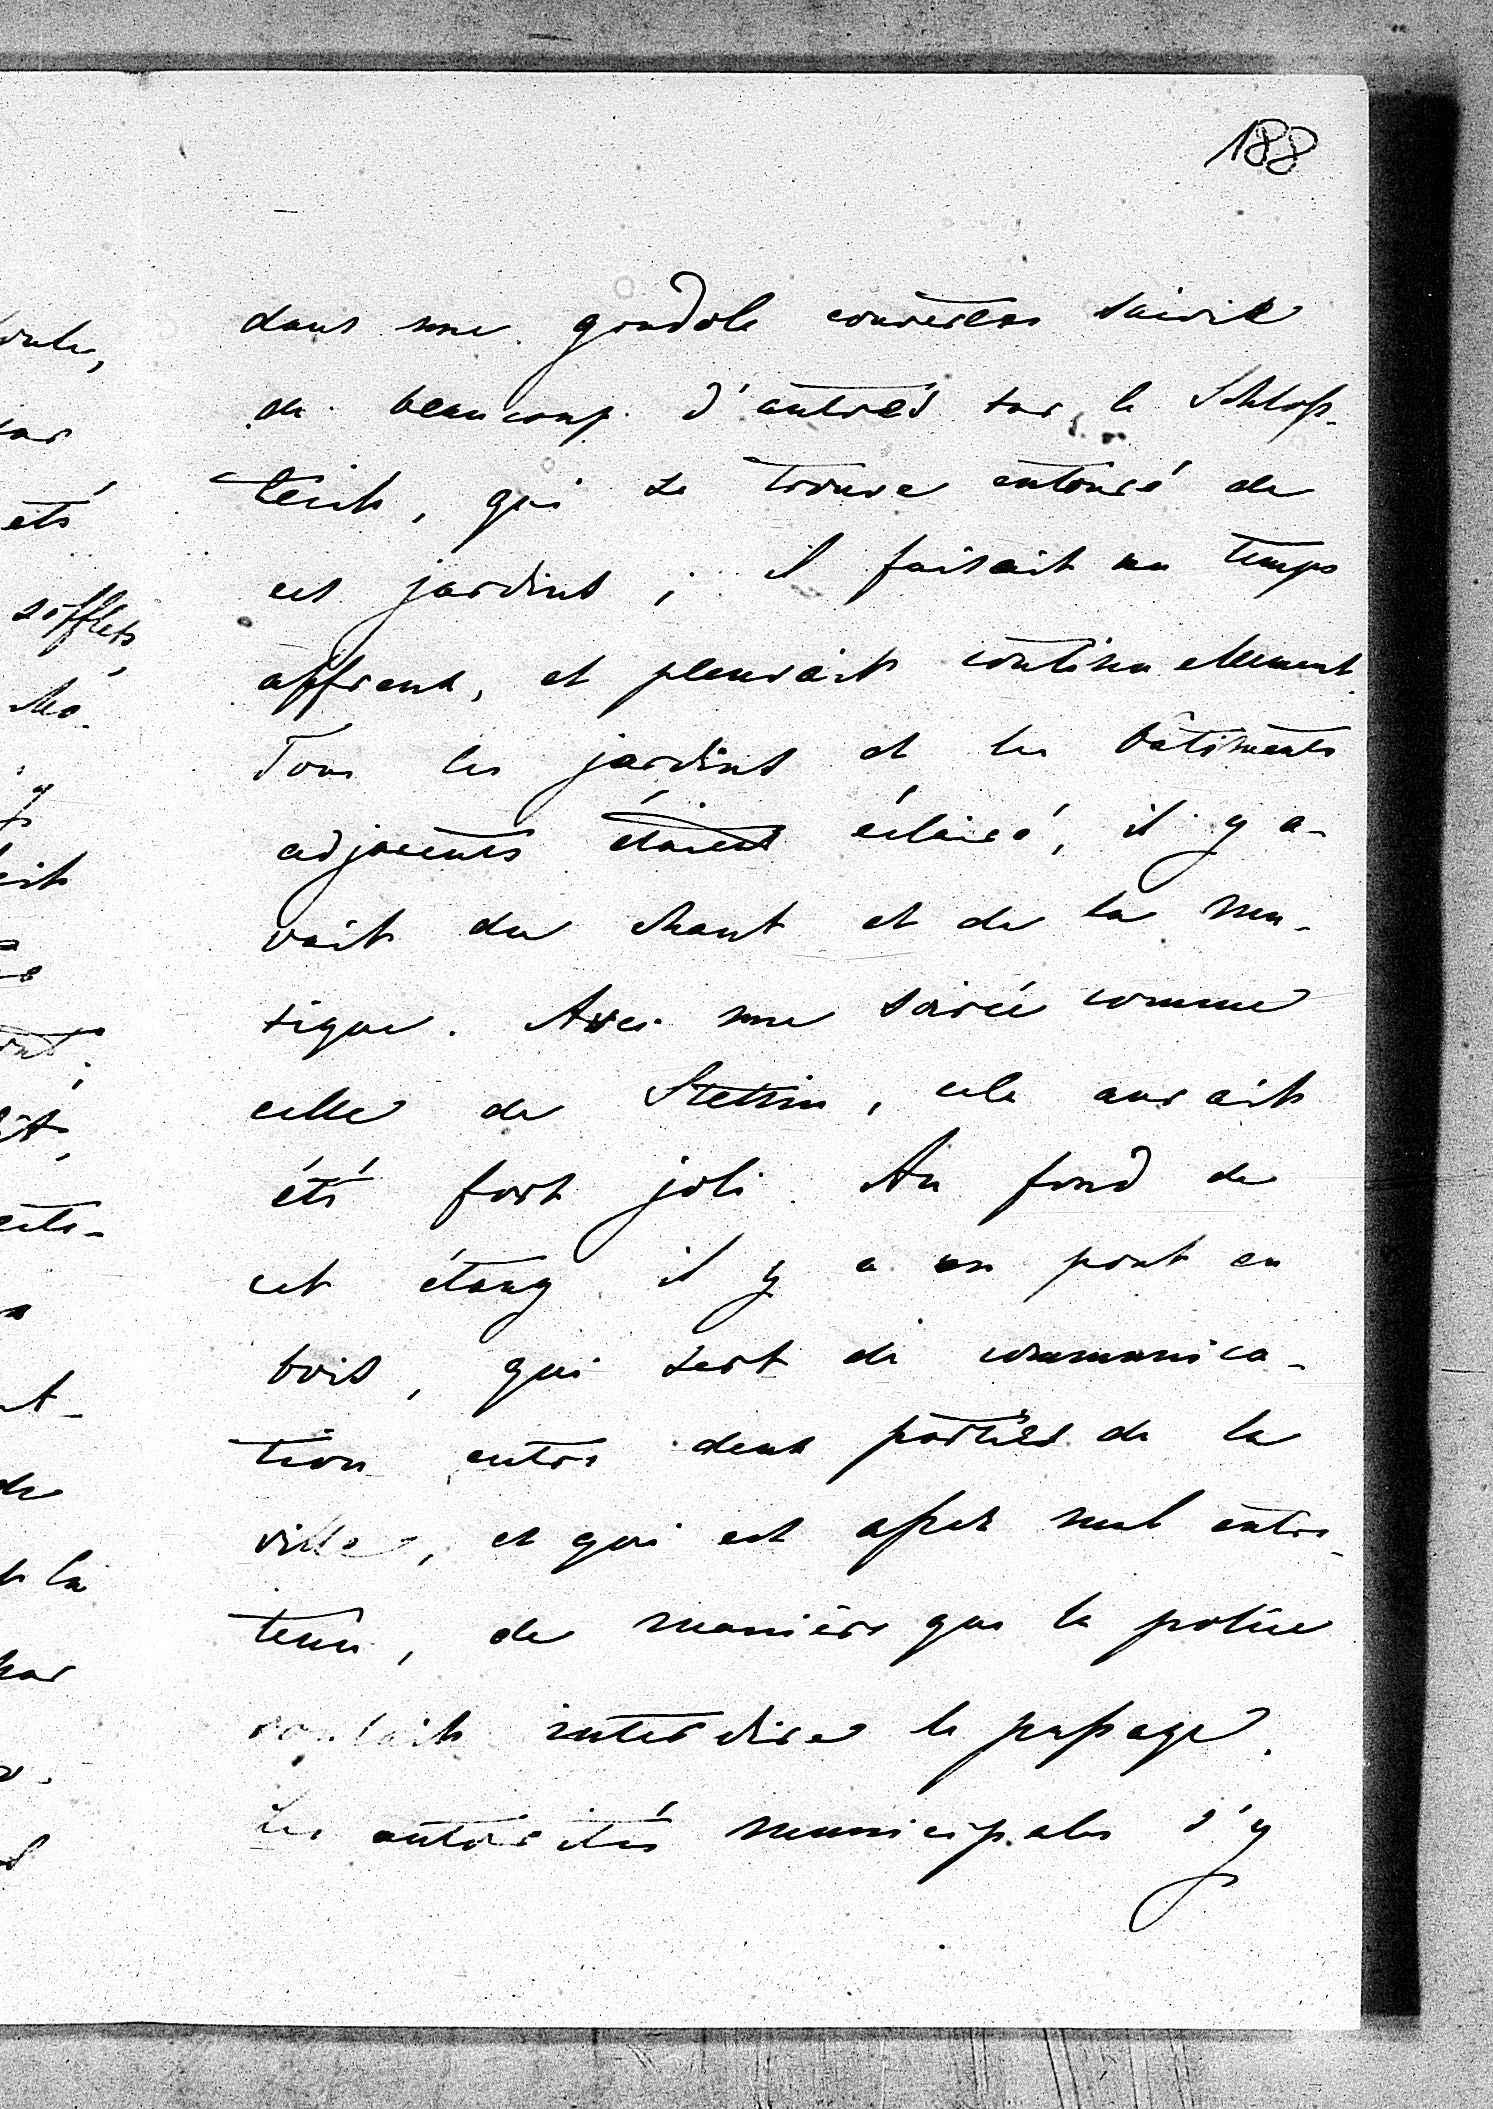 188
dans une gondole couverte suivie
de beaucoup d'autres sur le Schloß-
teich, qui se trouve entouré de
ces jardins ; il faisait un temps
affreux, et pleuvait continuellement.
Tous les jardins et les bâtiments
adjacents étaient éclairé, il y a-
vait du chant et de la mu-
sique. Avec une soirée comme
celle de Stettin, cela aurait
été fort joli. Au fond de
cet étang il y a un pont en
bois, qui sert de communica-
tion entre deux parties de la
ville, et qui est aßez mal entre-
tenu, de manière que la police
voulait interdire le paßage.
Les autorités municipales s'y